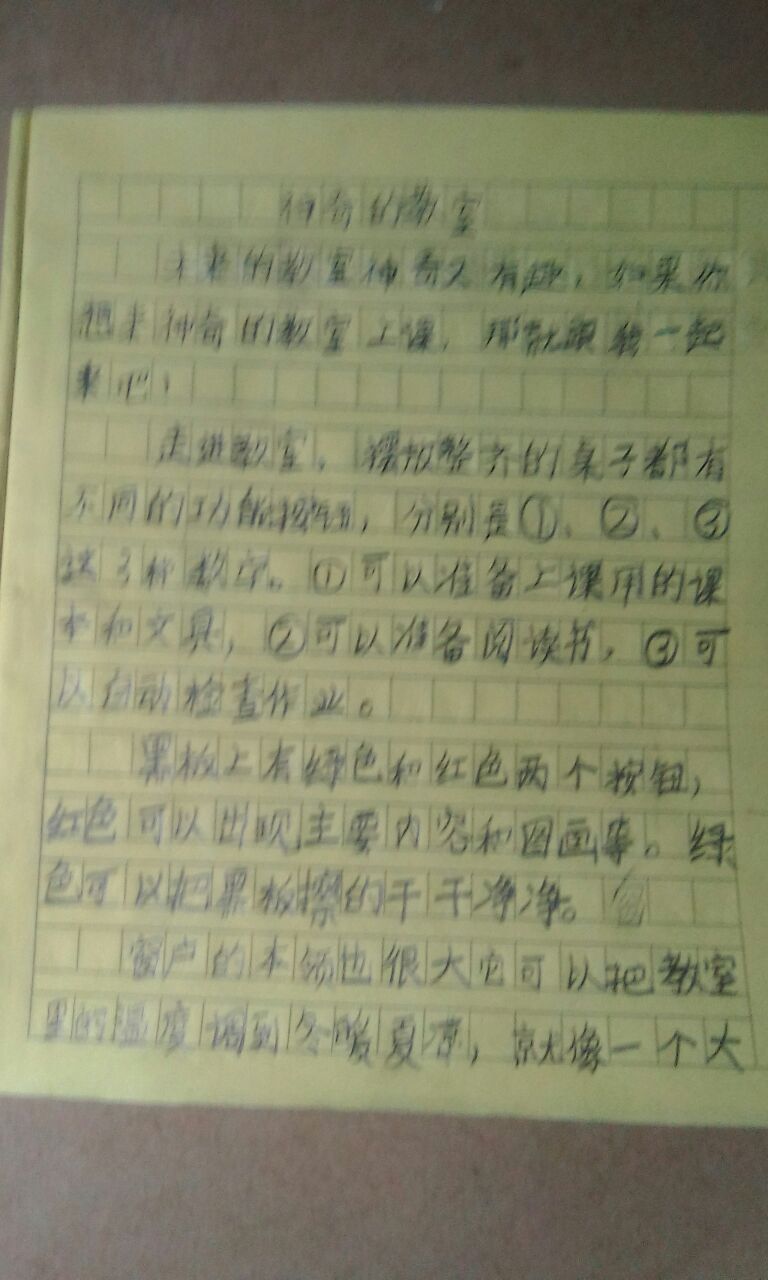 神奇的教室
未来的教室神奇又有趣，如果你
想来神奇的教室上课，那就跟我一起
来吧！
走进教室，摆放整齐的桌子都有
不同的功能按钮，分别是①、②、③
这3种数字。①可以准备上课用的课
本和文具，②可以准备阅读书，③可
以自动检查作业。
黑板上有绿色和红色两个按钮，
红色可以出现主要内容和图画等。绿
色可以把黑板擦的干干净净。
窗户的本领也很大它可以把教室
里的温度调到冬暖夏凉，就像一个大